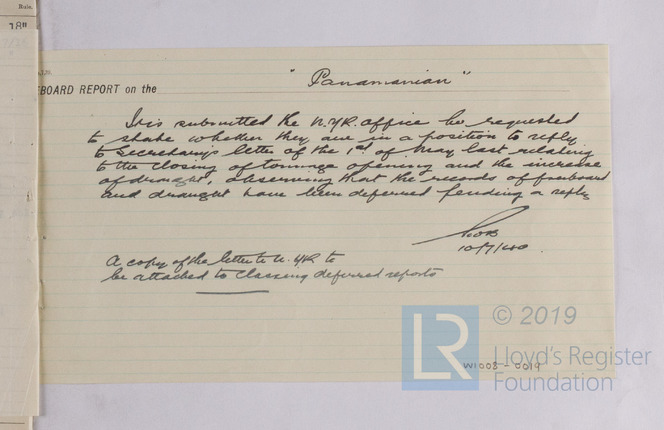 Bule.
18"
EBOARD REPORT on the
"Panamanian"
It is submitted the N.YK. office be requested
to state whether they are in a position to reply
to Secretary's letter of the 1st of May last relating
to the closing of tonnage opening and the increase
of draught, observing that the records of freeboard
and draught have been deferred pending a reply
10/7/40
A copy of the letter to N.YK to
be attached to Classing deferred reports
© 2019
LR
Lloyd's Register
Foundation
W1008-0019